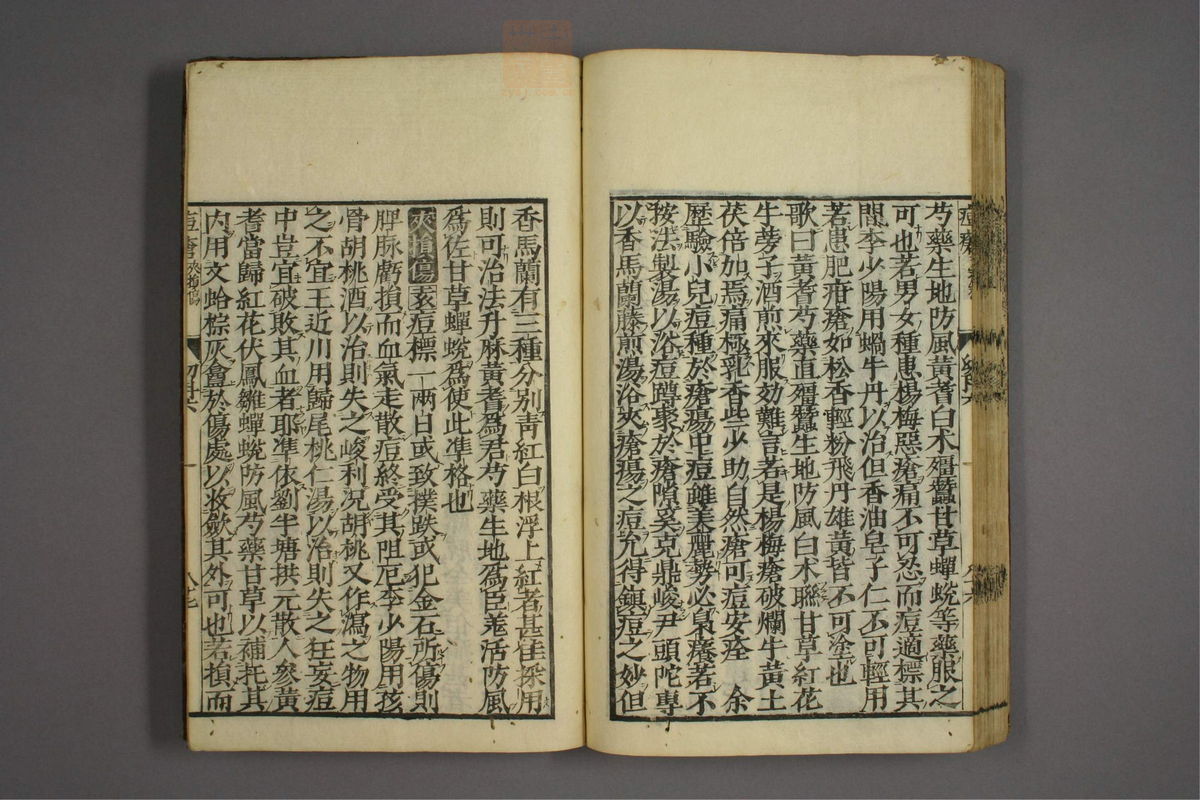 芍藥生地防風黃耆白朮殭蠶甘草蟬蛻等藥服之
可也若男女種患楊梅惡瘡痛不可忍而痘適標其
間李少陽用蝸牛丹以治但香油皂子仁不可輕用
若患肥疳瘡如松香輕粉飛丹雄黃皆不可塗也
歌曰黃耆芍藥直殭蠶生地防風白朮聯甘草紅花
牛蒡子酒煎來服効難言若是楊梅瘡破爛牛黃土
茯倍加焉痛極乳香些少助自然瘡可痘安全 余
歷驗小兒痘種於瘡瘍中痘雖美麗勢必臬癢若不
按法製湯以浴痘蹲聚於瘡隙奚克鼎峻尹頭陀專
以香馬蘭藤煎湯浴夾瘡瘍之痘允得鎮痘之妙但
香馬蘭有三種分別靑紅白根浮上紅者甚佳採用
則可治法升麻黃耆爲君芍藥生地爲臣羗活防風
爲佐甘草蟬蛻爲使此準格也
夾損傷 표痘標一兩日或致撲跌或犯金石所傷則
脾脉虧損而血氣走散痘終受其阻厄李少陽用孩
骨胡桃酒以治則失之峻利況胡桃又作瀉之物用
之不宜王近川用歸尾桃仁湯以治則失之狂妄痘
中豈宜破敗其血者耶準依劉半塘拱元散人參黃
耆當歸紅花伏鳳雛蟬蛻防風芍藥甘草以補托其
內用文蛤棕灰㑹於傷處以收斂其外可也若損而